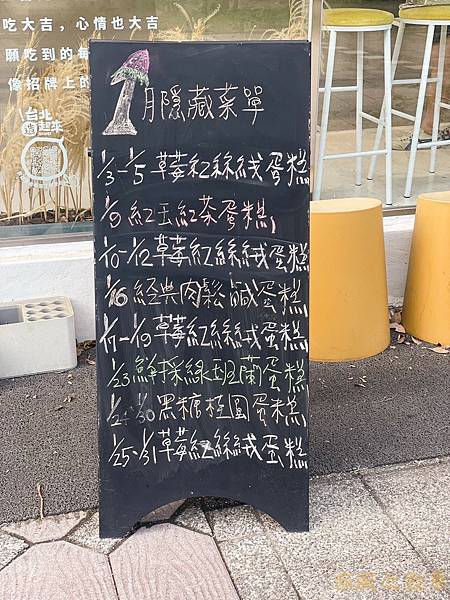 吃大吉,心情也大吉
願吃到的每
像招牌上的
台北
造起來
1月隱藏菜單
1/3-1/5 草莓紅絲絨蛋糕
1/9 紅玉紅茶蛋糕
1/10-1/12 草莓紅絲絨蛋糕
1/16 經典肉鬆鹹蛋糕
1/17-1/19 草莓紅絲絨蛋糕
1/23 鮮採綠班蘭蛋糕
1/24 1/30 黑糖桂圓蛋糕
1/25-1/31 草莓紅絲絨蛋糕